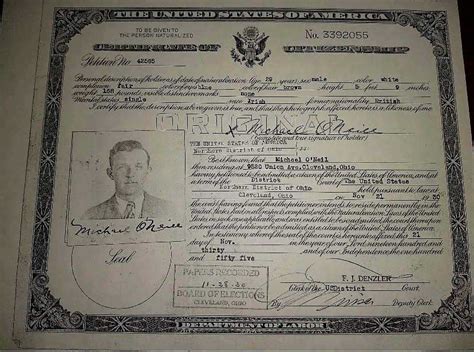 THE UNITED STATES OF AMERICA
TO BE GIVEN TO
THE PERSON NATURALIZED
No. 3392055
CERTIFICATE OF CITIZENSHIP
Petition No 42565
Personal description of holder as of date of naturalization: Age 29 years; sex male color white
complexion fair color of eyes blue color of hair brown height 5 feet 9 inches
weight 155 pounds; visible distinctive marks none
Marital status single race Irish former nationality British
I certify that the description above given is true and that the photograph affixed hereto is a likeness of me.
ORIGINAL
x Michael O'Neill
(Complete and true signature of holder)
THE UNITED STATES OF AMERICA
Northern District of Ohio
Be it known, that Michael O'Neil
then residing at 9520 Union Ave. Cleveland, Ohio
having petitioned to be admitted a citizen of the United States of America, and at
a term of the District Court of The United States
Northern District of Ohio held pursuant to law at
Cleveland, Ohio on Nov 21 1930
the court having found that the petitioner intends to reside permanently in the
United States, had in all respects complied with the
and was entitled to be so admitted, the court thereupon
ordered that the petitioner be admitted as a citizen of the United States of America.
In testimony whereof the seal of the court is hereunto affixed this 21
day of Nov. in the year of our Lord nineteen hundred and
thirty and of our Independence the one hundred
and fifty five
Michael O'Neill
Seal
PAPERS RECORDED
11-28-30
BOARD OF ELECTIONS
CLEVELAND, OHIO
F. J. DENZLER
Clerk of the US District Court
By Deputy Clerk
DEPARTMENT OF LABOR